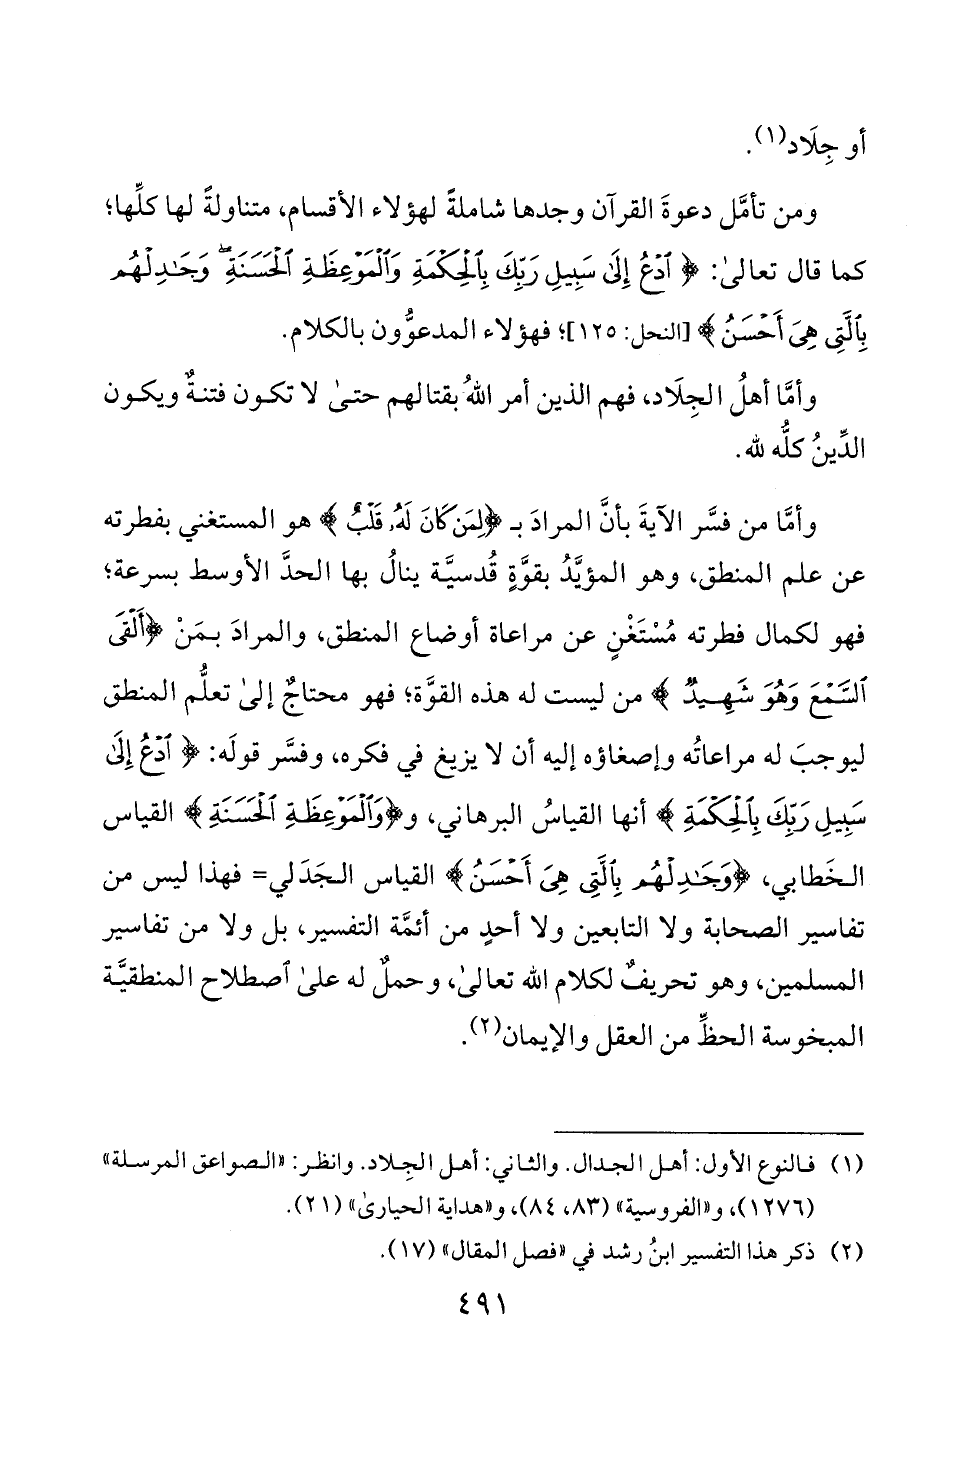 أو جِلَاد(١).
ومن تأمَّل دعوةَ القرآن وجدها شاملةً لهؤلاء الأقسام، متناولةً لها كلِّها؛
كما قال تعالىٰ: ﴿ ٱدْعُ إِلَىٰ سَبِيلِ رَبِّكَ بِٱلْحِكْمَةِ وَٱلْمَوْعِظَةِ ٱلْحَسَنَةِ ۖ وَجَٰدِلْهُم
بِٱلَّتِى هِىَ أَحْسَنُ ﴾ [النحل: ١٢٥]؛ فهؤلاء المدعوُّون بالكلام.
وأمَّا أهلُ الجِلَاد، فهم الذين أمر اللهُ بقتالهم حتىٰ لا تكون فتنةٌ ويكون
الدِّينُ كلُّه لله.
وأمَّا من فسَّر الآيةَ بأنَّ المرادَ بـ ﴿لِمَن كَانَ لَهُۥ قَلْبٌ ﴾ هو المستغني بفطرته
عن علم المنطق، وهو المؤيَّدُ بقوَّةٍ قُدسيَّة ينالُ بها الحدَّ الأوسط بسرعة؛
فهو لكمال فطرته مُسْتَغْنٍ عن مراعاة أوضاع المنطق، والمرادَ بمَنْ ﴿أَلْقَى
ٱلسَّمْعَ وَهُوَ شَهِيدٌ ﴾ من ليست له هذه القوَّة؛ فهو محتاجٌ إلىٰ تعلُّم المنطق
ليوجبَ له مراعاتُه وإصغاؤه إليه أن لا يزيغ في فكره، وفسَّر قولَه: ﴿ ٱدْعُ إِلَىٰ
سَبِيلِ رَبِّكَ بِٱلْحِكْمَةِ ﴾ أنها القياسُ البرهاني، و﴿وَٱلْمَوْعِظَةِ ٱلْحَسَنَةِ ﴾ القياس
الخَطابي، ﴿وَجَٰدِلْهُم بِٱلَّتِى هِىَ أَحْسَنُ ﴾ القياس الجَدَلي= فهذا ليس من
تفاسير الصحابة ولا التابعين ولا أحدٍ من أئمَّة التفسير، بل ولا من تفاسير
المسلمين، وهو تحريفٌ لكلام الله تعالىٰ، وحملٌ له علىٰ ٱصطلاح المنطقيَّة
المبخوسة الحظِّ من العقل والإيمان(٢).
(١) فالنوع الأول: أهل الجدال. والثاني: أهل الجِلاد. وانظر: «الصواعق المرسلة»
(١٢٧٦)، و«الفروسية» (٨٣، ٨٤)، و«هداية الحيارىٰ» (٢١).
(٢) ذكر هذا التفسير ابنُ رشد في «فصل المقال» (١٧).
٤٩١